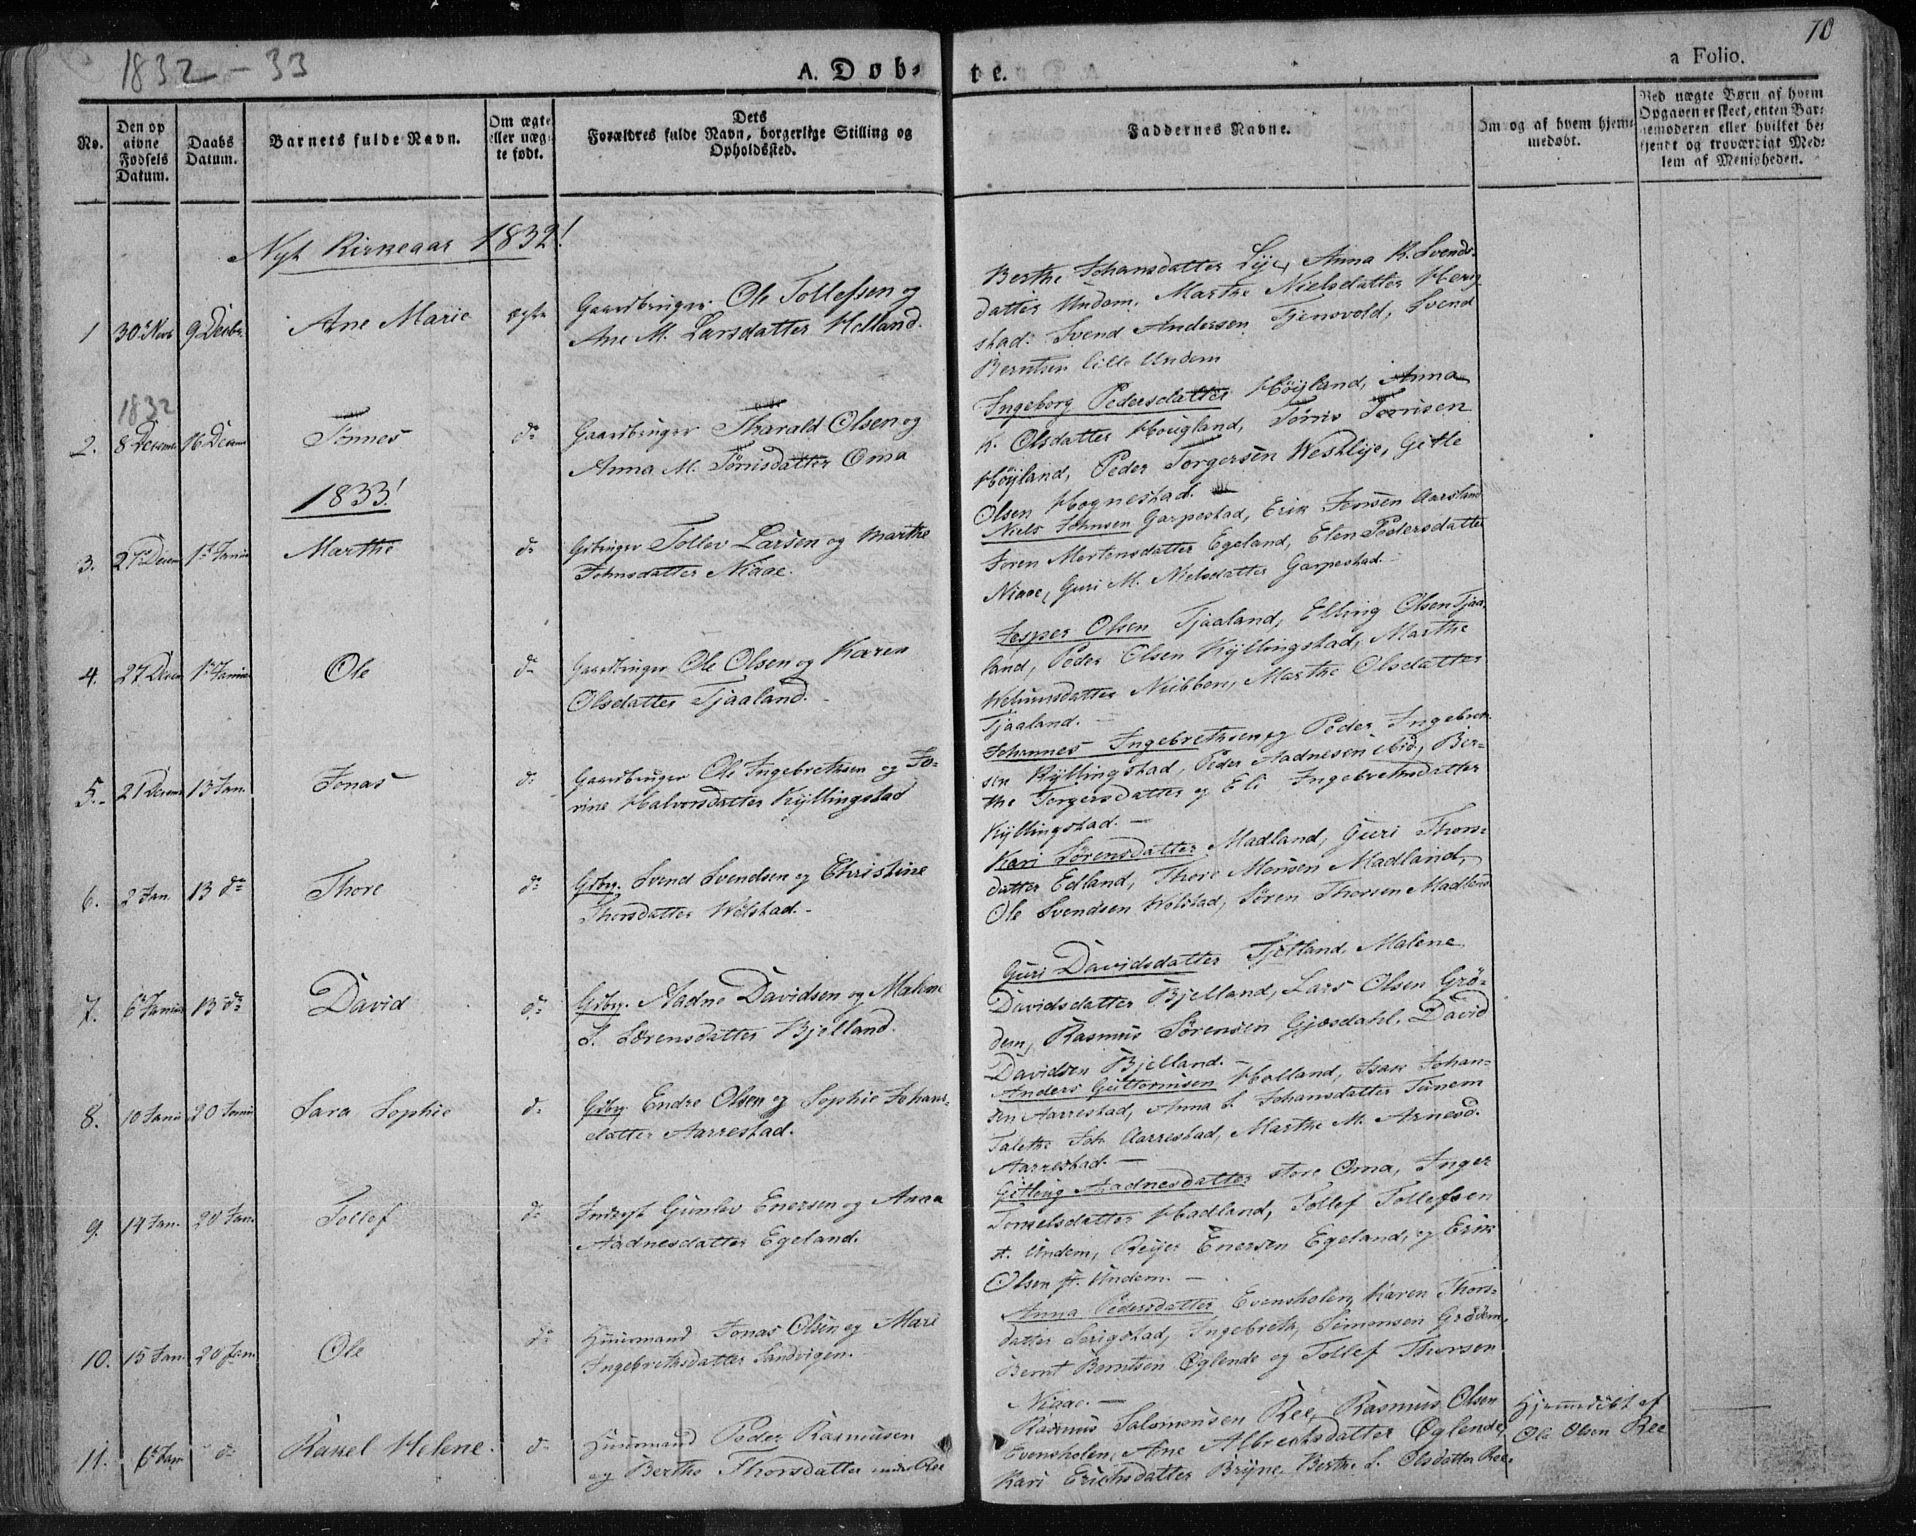 1832-33
A. Døb-
te.
a Folio.
70
No.
Den op
givne
Fødsels
Datum.
Daabs
Datum.
Barnets fulde Navn.
Om ægte
eller uæg-
te født.
Dets
Forældres fulde Navn, borgerlige Stilling og
Opholdssted.
Faddernes Navne.
Om og af hvem hjem-
medøbt.
Ved uægte Børn af hvem
Opgaven er skeet, enten Bar-
nemoderen eller hvilket be-
kjendt og troværdigt Med-
lem af Menigheden.
Nyt Kirkeaar 1832!
1 30 Nov 9 Decbr. Ane Marie ægte
Gaardbruger Ole Tollefsen og
Ane M. Larsdatter Helland.
Berthe Johansdatter Lye, Anna K. Svends-
datter Undem. Marthe Nielsdatter Herig-
stad. Svend Andersen Tjensvold, Svend
Berntsen lille Undem
1832
2. 8 Decem 16 Decem Tønnes do
Gaardbruger Tharald Olsen og
Anna M. Tønnisdatter Oma
Ingeborg Pedersdatter Høyland, Anna
K. Olsdatter Hougland, Tønis Tønnisen
Høyland, Peder Torgersen Westlye, Gitle
Olsen Hognestad.
1833!
3. 27 Decem 1 Janua Marthe do
Gbruger Tollev Larsen og Marthe
Johnsdatter Niaae.
Niels Johnsen Garpestad, Erik Jensen Aarsland
Soren Mortensdatter Egeland, Elen Pedersdatter
Niaae, Guri M. Nielsdatter Garpestad.
4. 27 Decem 1 Janua Ole do
Gaardbruger Ole Olsen og Karen
Olsdatter Tjaaland.
Jesper Olsen Tjaaland, Elling Olsen Tjaa-
land, Peder Olsen Kyllingstad, Marthe
datter Nubben, Marthe Olsdatter
Tjaaland.
5. 21 Decem 13 Jan. Jonas do
Gaardbruger Ole Ingebrethsen og Jo-
rine Halvorsdatter Kyllingstad
Johannes Ingebrethsen og Peder Ingebreth-
sen Kyllingstad, Peder Aadnesen ibid, Ber-
the Torgersdatter og Eli Ingebrethsdatter
Kyllingstad.
6. 2 Jan. 13 do Thore do
Gdbr. Svend Svendsen og Christine
Thorsdatter Wølstad.
Kari Sørensdatter Madland, Guri Thors-
datter Edland, Thore Monsen Madland,
Ole Svendsen Wølstad, Sören Thorsen Madland
7. 6 Janua 13 do David do
Gdbr. Aadne Davidsen og Malene
S. Sørensdatter Bjelland.
Guri Davidsdatter Tjetland, Malene
Davidsdatter Bjelland, Lars Olsen Grø-
dem, Rasmus Sørensen Gjæsdahl, David
Davidsen Bjelland.
8. 10 Janu 20 Janu Sara Sophie do
Gdbr. Endre Olsen og Sophie Johans-
datter Aarrestad.
Anders Guttormsen Holland, Isak Johan-
sen Aarrestad, Anna S. Johansdatter Tunem
Talethe Joh. Aarrestad, Marthe M. Arnesd.
Aarrestad.
9. 14 Jan. 20 Jan. Tollef do
Inderst Gunlev Enersen og Anna
Aadnesdatter Egeland.
Gitlaug Aadnesdatter store Oma, Inger
Tonielsdatter Hadland, Tollef Tollefsen
st. Undem, Reyer Enersen Egeland, og Erik
Olsen st. Undem.
10. 15 Jan. 20 Jan. Ole do
Huusmand Jonas Olsen og Mari
Ingebrethsdatter Sandvigen.
Anna Pedersdatter Evensholen, Karen Thors-
datter Serigstad, Ingebreth Simonsen Grødem,
Bernt Berntsen Øglende og Tollef Thorsen
Niaae.
11. 6 Jan do Rakel Helene. do
Huusmand Peder Rasmusen
og Berthe Thorsdatter under Ree
Rasmus Salomonsen Ree, Rasmus Olsen
Evensholen, Ane Albrechtsdatter Øglende,
Kari Erichsdatter Bryne, Berthe S. Olsdatter Ree
Hjemmedøbt af
Ole Olsen Ree